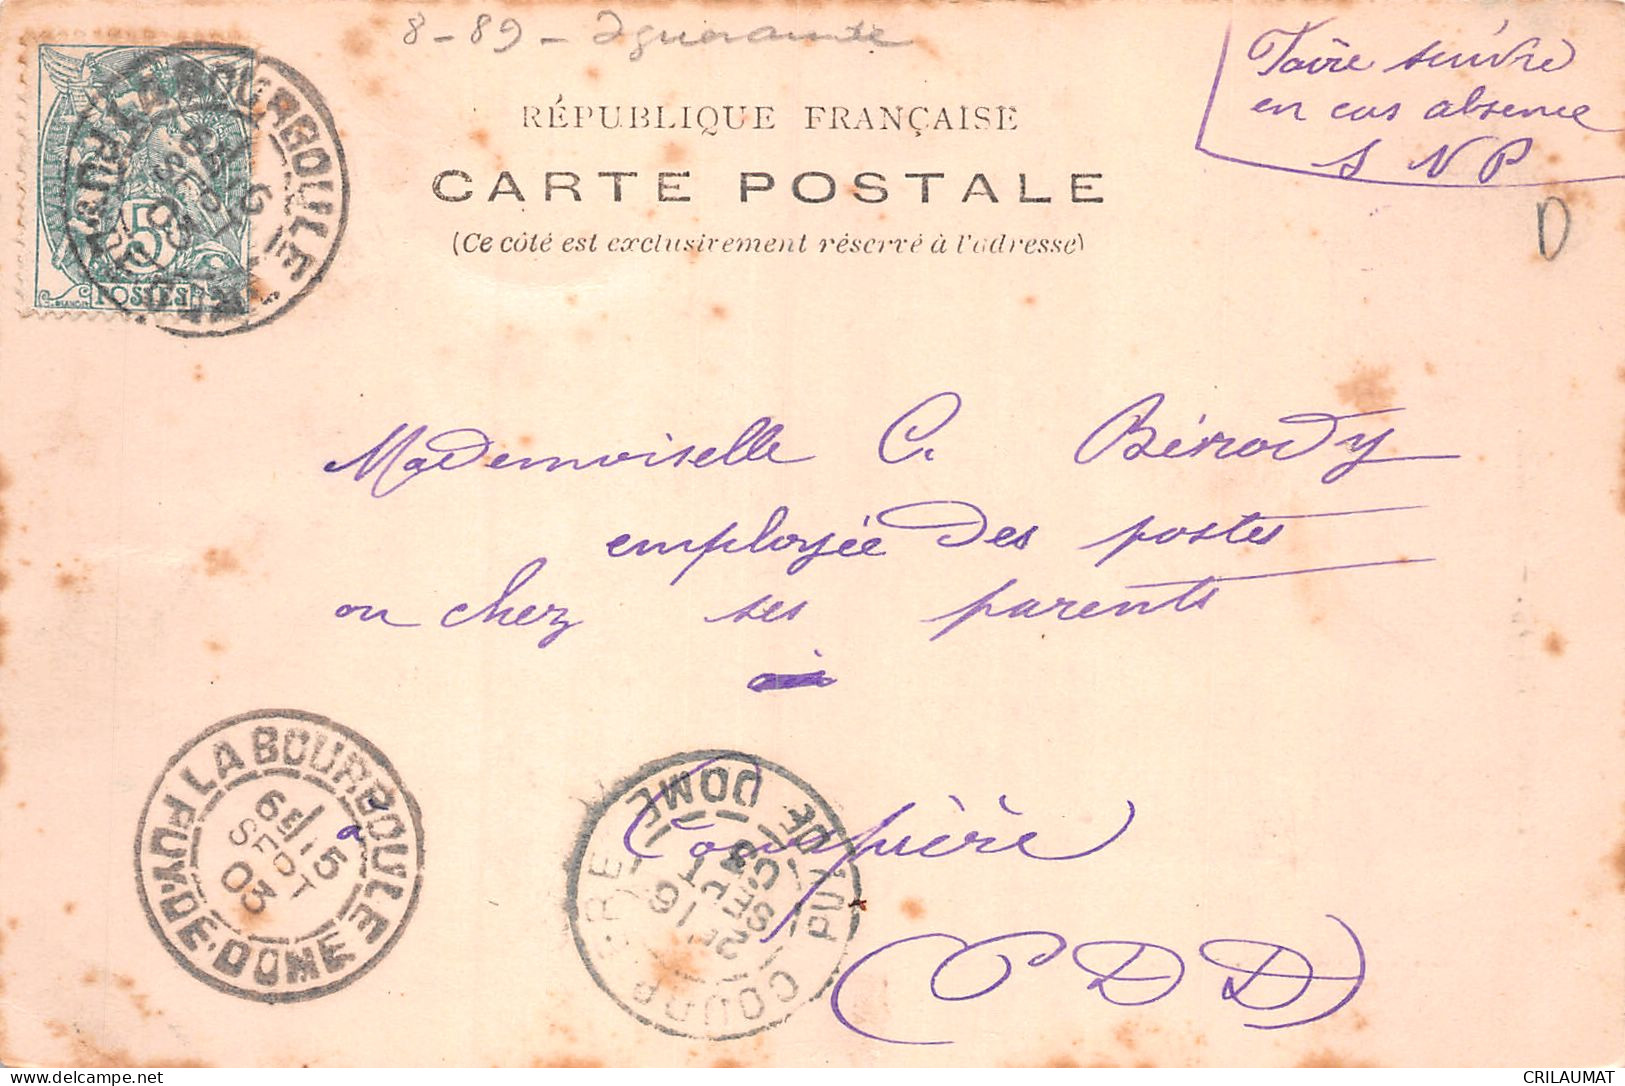 8-89-Iguerande
Faire suivre
en cas absence
S V P
D
RÉPUBLIQUE FRANÇAISE
CARTE POSTALE
(Ce côté est exclusivement réservé à l'adresse)
LA BOURBOULE
PUY-DE-DOME
SEPT
03
5
POSTES
Mademoiselle C. Bérody
employée des postes
ou chez ses parents
à
Courpière
(P D D)
LA BOURBOULE
6E/15
SEPT
03
PUY-DE-DOME
COURPIÈRE
16
SEPT
03
PUY DE DOME
CRILAUMAT